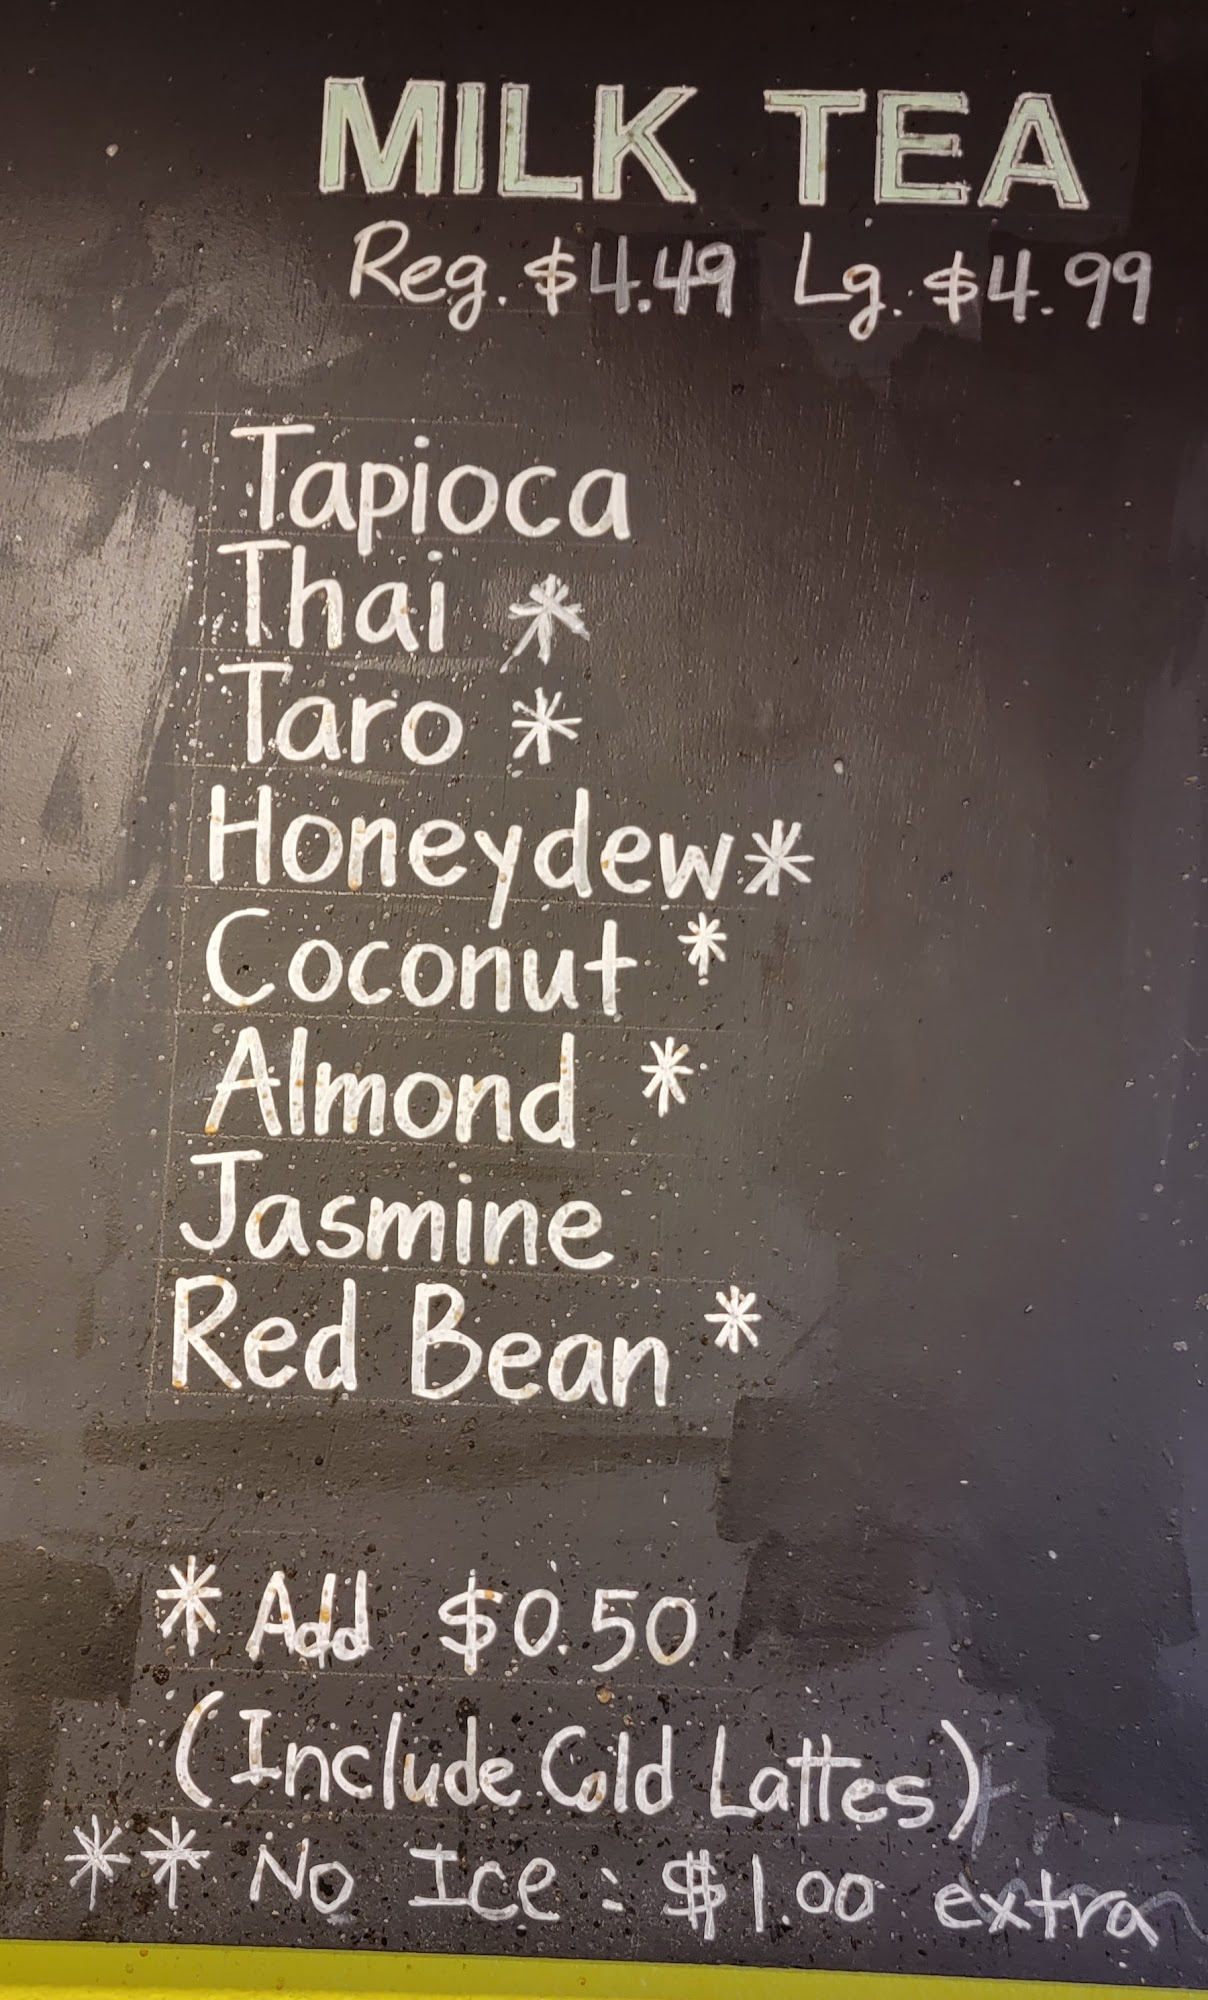 MILK TEA
Reg. $4.49 Lg. $4.99
Tapioca
Thai *
Taro *
Honeydew *
Coconut *
Almond *
Jasmine
Red Bean *
* Add $0.50
(Include Cold Lattes)
** No Ice : $1.00 extra